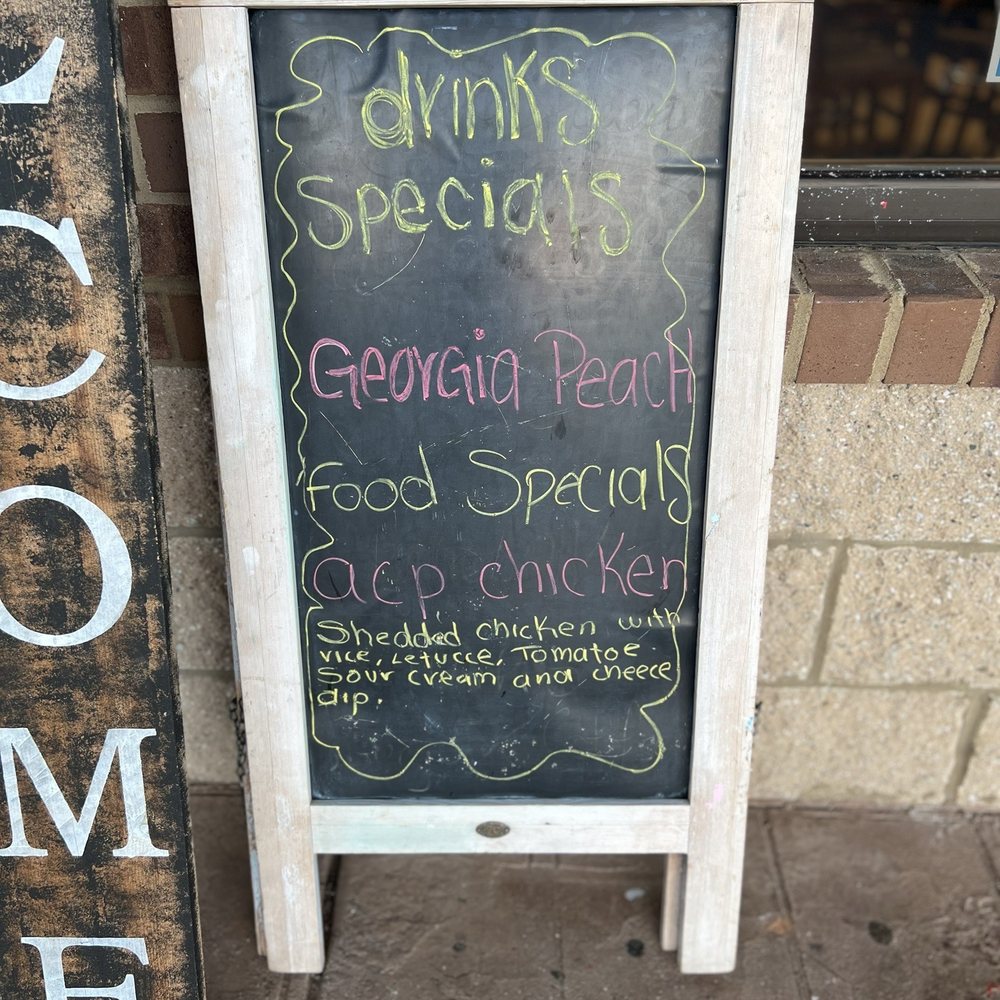 L
C
O
M
E
drinks
Specials
Georgia Peach
food Specials
acp chicken
Shedded chicken with
rice, Letucce, Tomatoe.
Sour cream and cheece
dip.